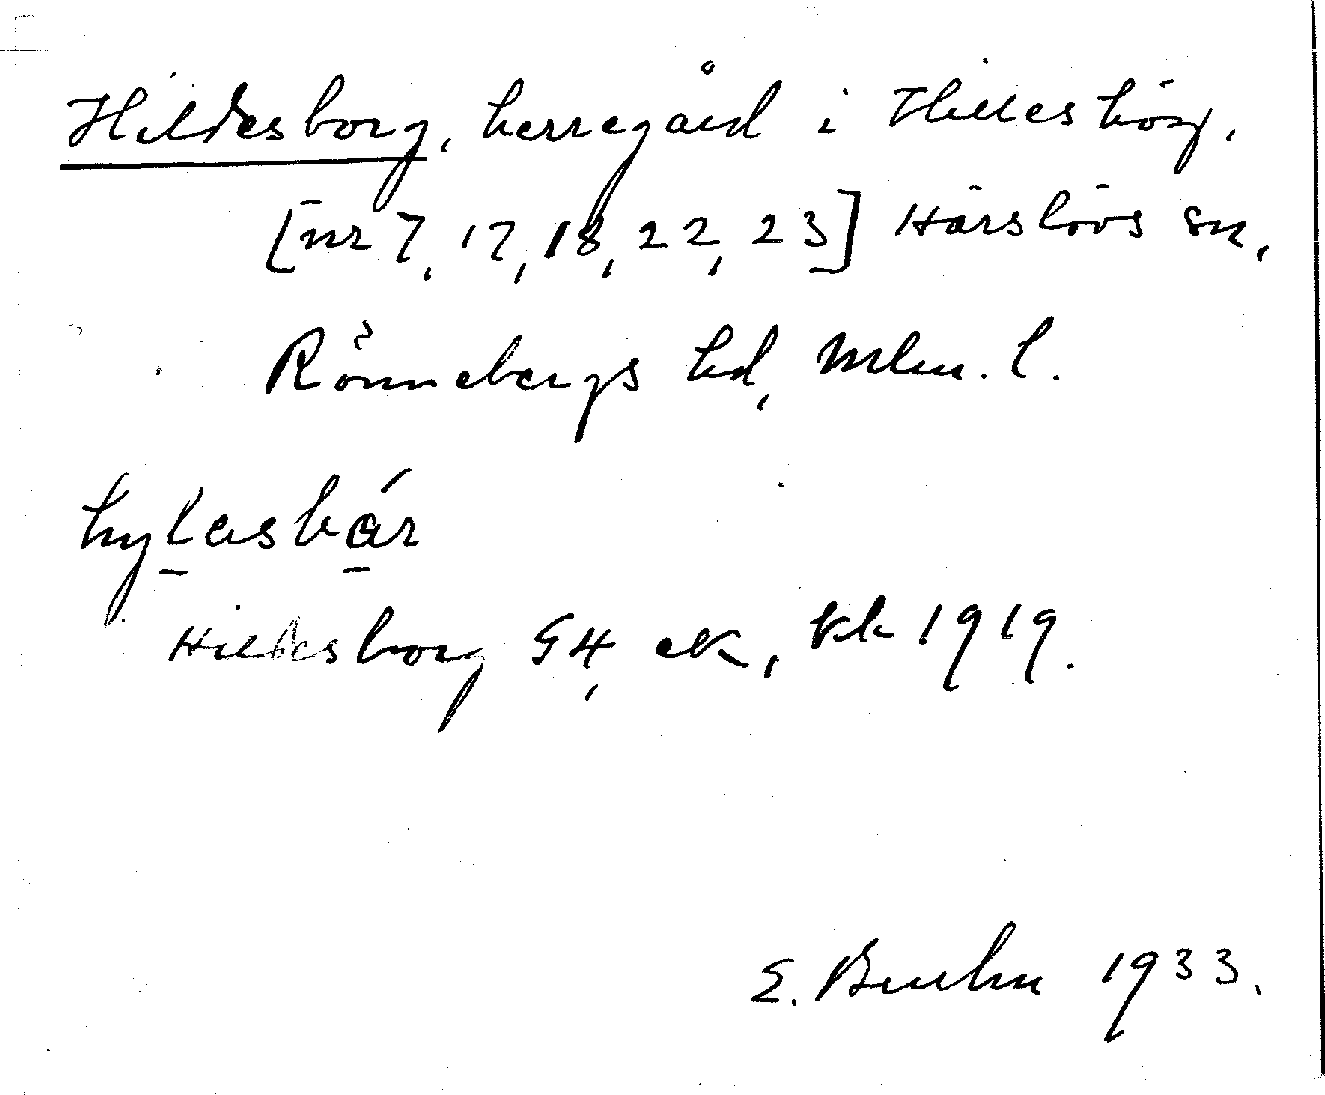 Hildesborg, herregård i Hilleshög,
[nr 7, 17, 18, 22, 23] Härslövs sn,
Rönnebergs hd, Mlm. l.
hyl̲asbá̲r
Hildesborg G4, ek, kk 1919.
E. Bruhn 1933.